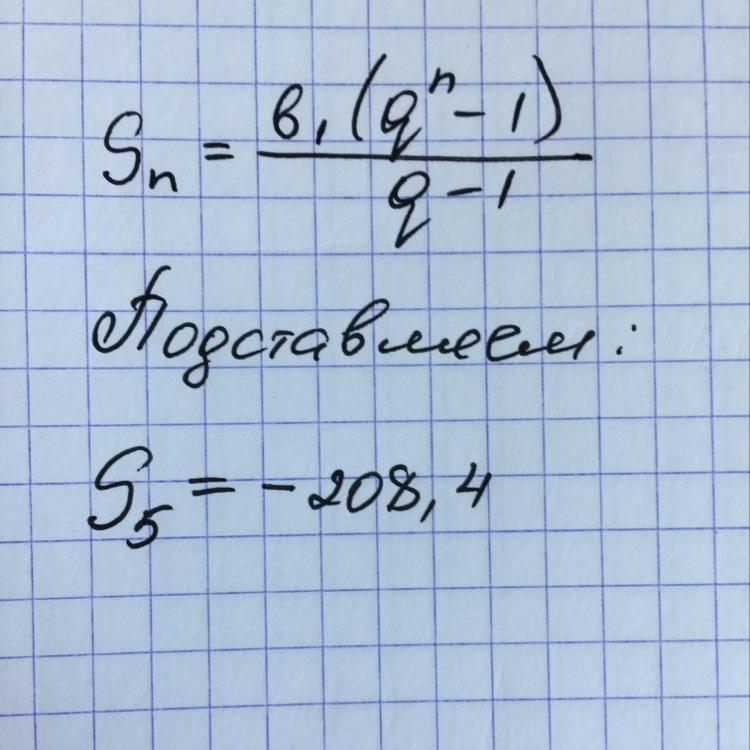 Sₙ = в₁(qⁿ - 1) / q - 1
Подставляем:
S₅ = - 208,4